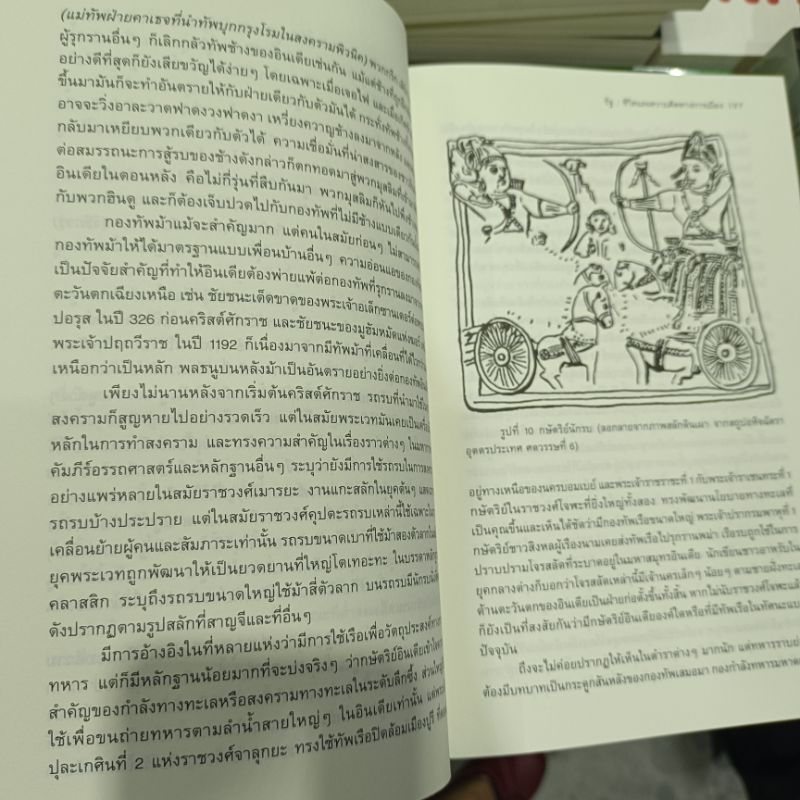 (แม่ทัพฝ่ายคาเธจที่นำทัพบุกกรุงโรมในสงครามพิวนิค) พวกกรีก
ผู้รุกรานอื่นๆ ก็เลิกกลัวทัพช้างของอินเดียเช่นกัน แม้แต่ช้างที่ถูก
อย่างดีที่สุดก็ยังเสียขวัญได้ง่ายๆ โดยเฉพาะเมื่อเจอไฟ และเมื่อ
ขึ้นมามันก็จะทำอันตรายให้กับฝ่ายเดียวกับตัวมันได้ กระทั่งทัพช้าง
อาจจะวิ่งอาละวาดฟาดงวงฟาดงา เหวี่ยงควาญช้างลงมาจากหลัง
กลับมาเหยียบพวกเดียวกับตัวได้ ความเชื่อมั่นที่น่าสงสารของชาว
ต่อสมรรถนะการสู้รบของช้างดังกล่าวก็ตกทอดมาสู่พวกมุสลิมที่
อินเดียในตอนหลัง คือไม่กี่รุ่นที่สืบกันมา พวกมุสลิมก็หันไปพึ่ง
กับพวกฮินดู และก็ต้องเจ็บปวดไปกับกองทัพที่ไม่มีช้างแบบเดียวกัน
กองทัพม้าแม้จะสำคัญมาก แต่คนในสมัยก่อนๆ ไม่สามารถ
กองทัพม้าให้ได้มาตรฐานแบบเพื่อนบ้านอื่นๆ ความอ่อนแอของกอง
เป็นปัจจัยสำคัญที่ทำให้อินเดียต้องพ่ายแพ้ต่อกองทัพที่รุกรานลงมาจาก
ตะวันตกเฉียงเหนือ เช่น ชัยชนะเด็ดขาดของพระเจ้าอเล็กซานเดอร์ต่อ
ปอรุส ในปี 326 ก่อนคริสต์ศักราช และชัยชนะของมูฮัมหมัดแห่ง
พระเจ้าปฤถวีราช ในปี 1192 ก็เนื่องมาจากมีทัพม้าที่เคลื่อนที่ได้
เหนือกว่าเป็นหลัก พลธนูบนหลังม้าเป็นอันตรายอย่างยิ่งต่อกองทัพ
เพียงไม่นานหลังจากเริ่มต้นคริสต์ศักราช รถรบที่นำมาใช้ใน
สงครามก็สูญหายไปอย่างรวดเร็ว แต่ในสมัยพระเวทมันเคยเป็นเครื่อง
หลักในการทำสงคราม และทรงความสำคัญในเรื่องราวต่างๆ ในมหา
คัมภีร์อรรถศาสตร์และหลักฐานอื่นๆ ระบุว่ายังมีการใช้รถรบในการ
อย่างแพร่หลายในสมัยราชวงศ์เมารยะ งานแกะสลักในยุคต้นๆ แสดง
รถรบบ้างประปราย แต่ในสมัยราชวงศ์คุปตะรถรบเหล่านี้ใช้เฉพาะ
เคลื่อนย้ายผู้คนและสัมภาระเท่านั้น รถรบขนาดเบาที่ใช้ม้าสองตัวลากใน
ยุคพระเวทถูกพัฒนาให้เป็นยวดยานที่ใหญ่โตเทอะทะ ในบรรดาหลัก
คลาสสิก ระบุถึงรถรบขนาดใหญ่ใช้ม้าสี่ตัวลาก บนรถรบมีนักรบ
ดังปรากฏตามรูปสลักที่สาญจีและที่อื่นๆ
มีการอ้างอิงในที่หลายแห่งว่ามีการใช้เรือเพื่อวัตถุประสงค์ทาง
ทหาร แต่ก็มีหลักฐานน้อยมากที่จะบ่งจริงๆ ว่ากษัตริย์อินเดียเข้าใจ
สำคัญของกำลังทางทะเลหรือสงครามทางทะเลในระดับลึกซึ้ง ส่วนใหญ่
ใช้เพื่อขนถ่ายทหารตามลำน้ำสายใหญ่ๆ ในอินเดียเท่านั้น แต่
ปุละเกศินที่ 2 แห่งราชวงศ์จาลุกยะ ทรงใช้ทัพเรือปิดล้อมเมืองปูรี
รัฐ : ชีวิตและความคิดทางการเมือง
รูปที่ 10 กษัตริย์นักรบ (ลอกลายจากภาพสลักดินเผา จากสถูปอหิจฉัตรา
อุตตรประเทศ ศตวรรษที่ 6)
อยู่ทางเหนือของนครบอมเบย์ และพระเจ้าราชราชะที่ 1 กับพระเจ้าราเชนทระที่ 1
กษัตริย์ในราชวงศ์โจฬะที่ยิ่งใหญ่ทั้งสอง ทรงพัฒนานโยบายทางทะเลที่
เป็นคุณขึ้นและเห็นได้ชัดว่ามีกองทัพเรือขนาดใหญ่ พระเจ้าปรากรมพาหุที่ 1
กษัตริย์ชาวสิงหลผู้เรืองนามเคยส่งทัพเรือไปรุกรานพม่า เรือรบถูกใช้ในการ
ปราบปรามโจรสลัดที่ระบาดอยู่ในมหาสมุทรอินเดีย นักเขียนชาวอาหรับใน
ยุคกลางต่างก็บอกว่าโจรสลัดเหล่านี้มีเจ้านครเล็กๆ น้อยๆ ตามชายฝั่งทะเล
ด้านตะวันตกของอินเดียเป็นฝ่ายก่อตั้งขึ้นทั้งสิ้น หากไม่นับราชวงศ์โจฬะแล้ว
ก็ยังเป็นที่สงสัยกันว่ามีกษัตริย์อินเดียองค์ใดหรือที่มีทัพเรือในทัศนะแบบ
ปัจจุบัน
ถึงจะไม่ค่อยปรากฏให้เห็นในตำราต่างๆ มากนัก แต่ทหารราบ
ต้องมีบทบาทเป็นกระดูกสันหลังของกองทัพเสมอมา กองกำลังทหารมหาด